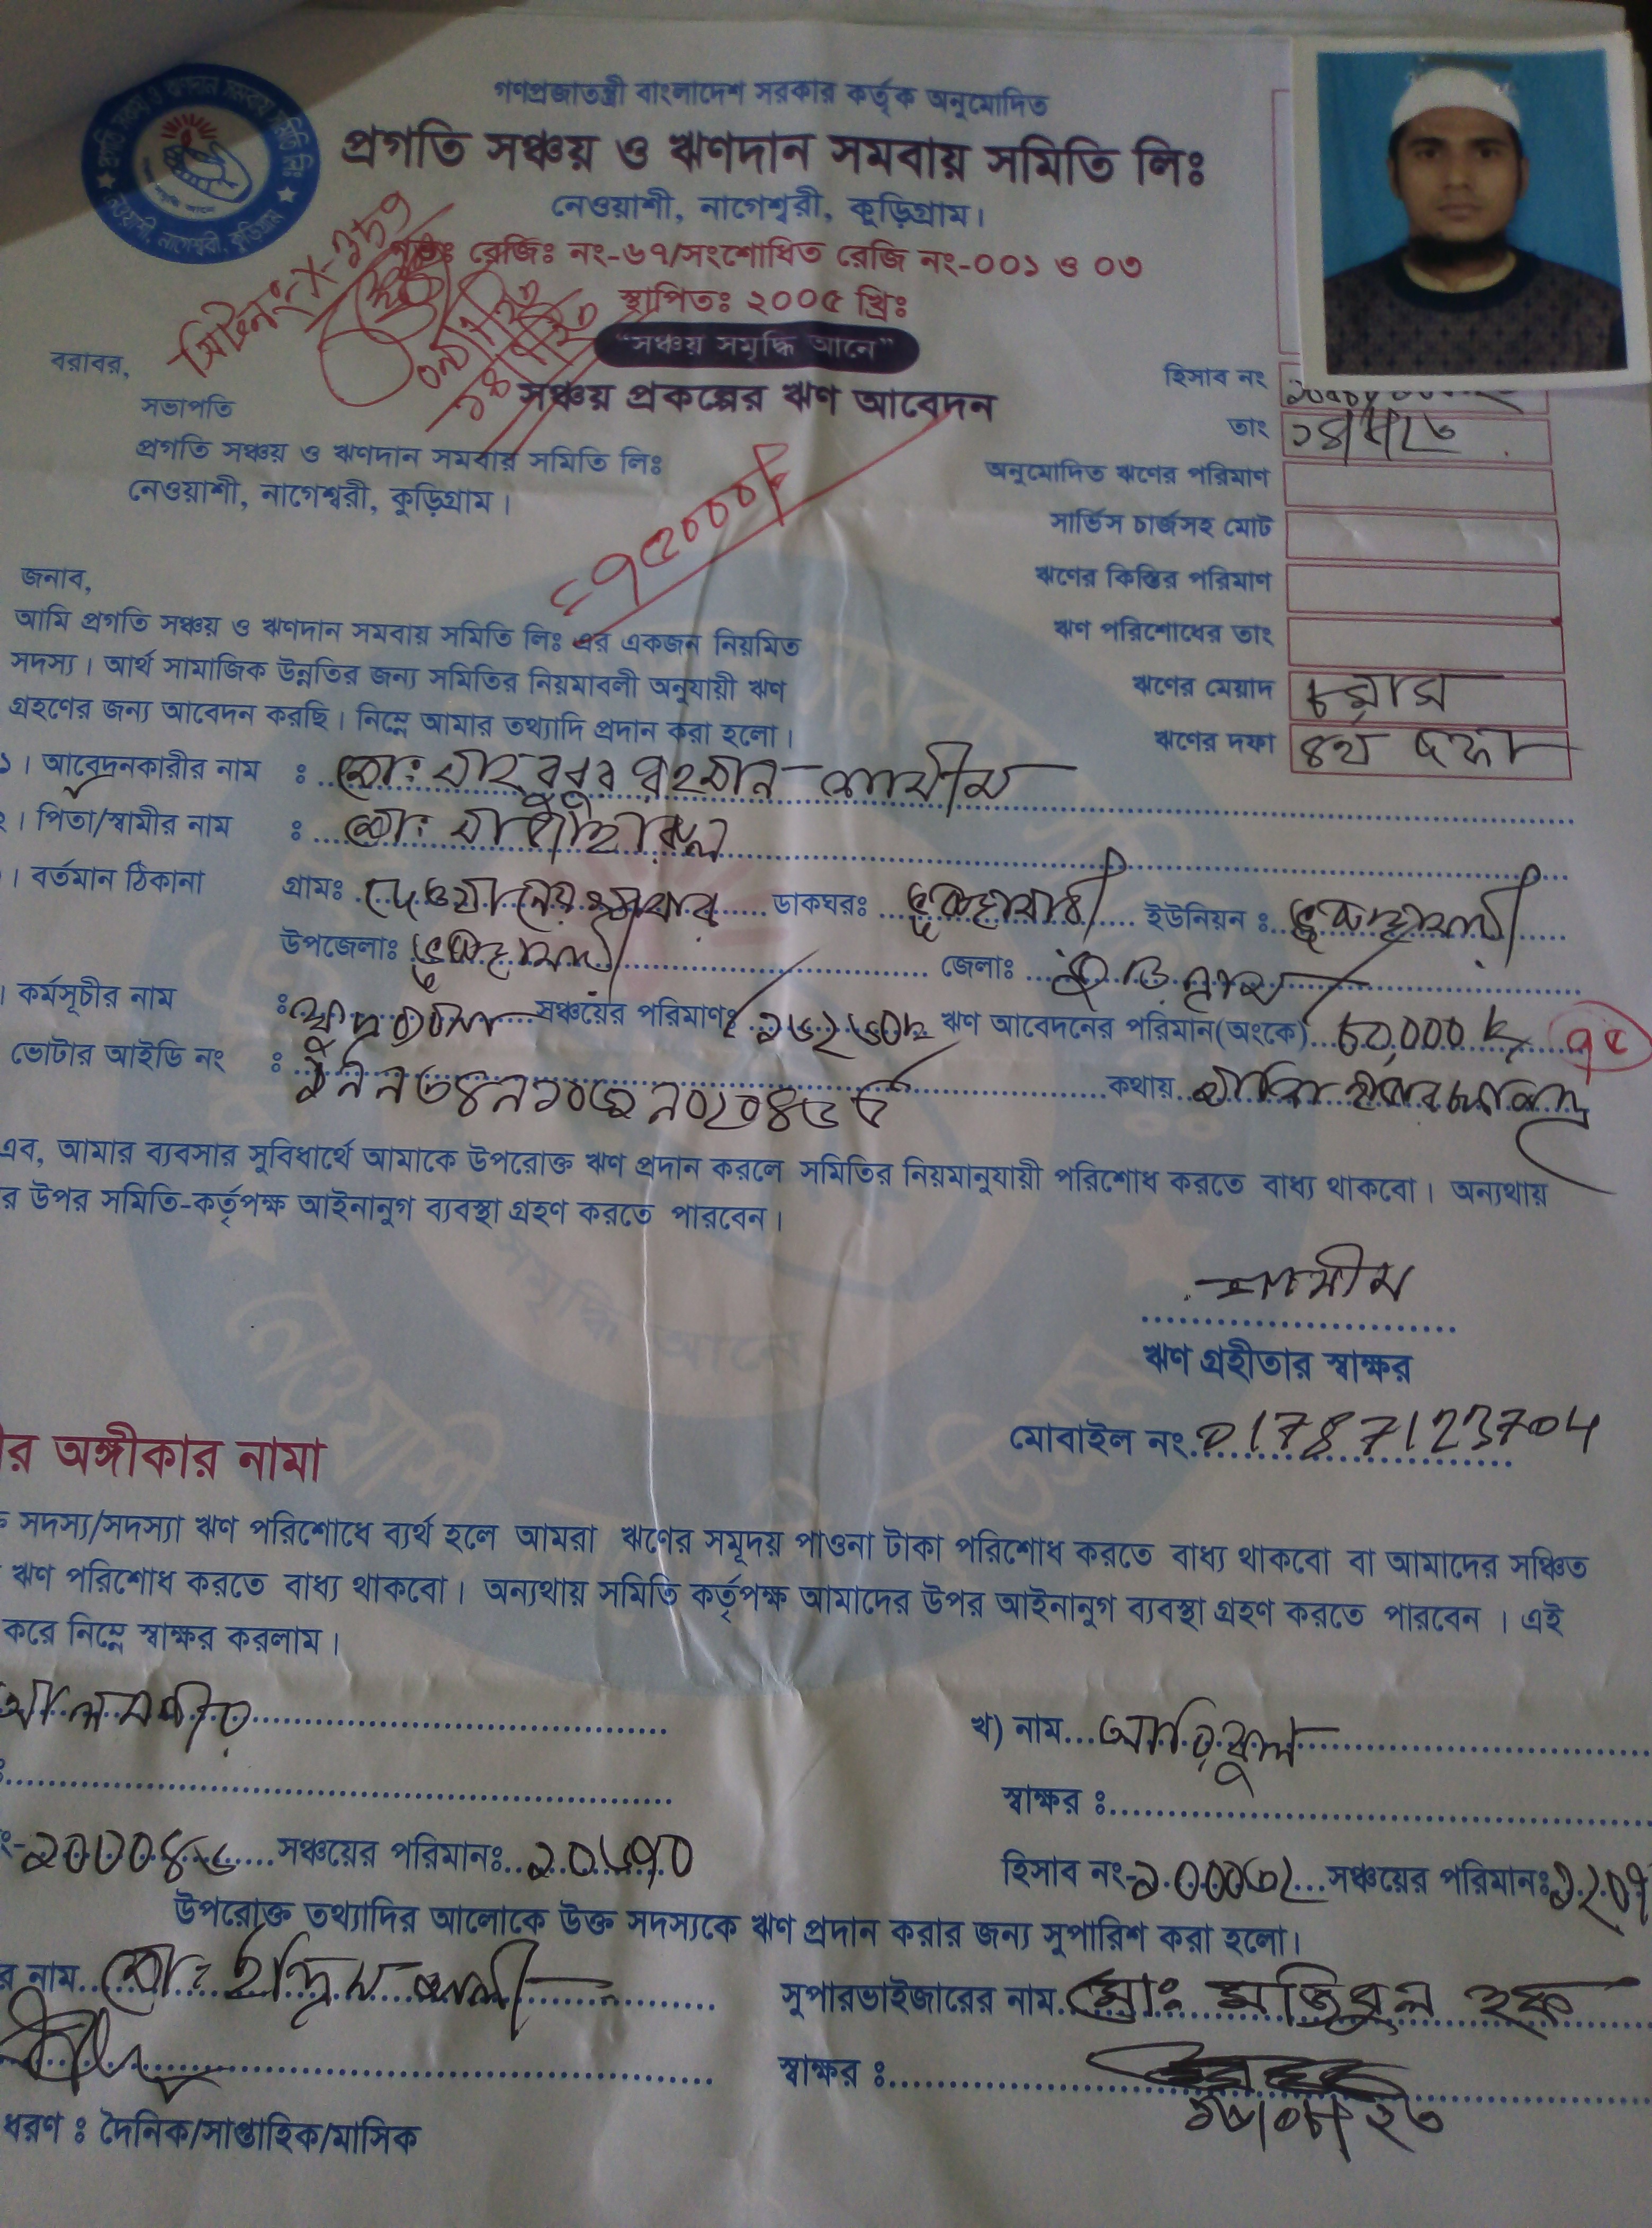 গণপ্রজাতন্ত্রী বাংলাদেশ সরকার কর্তৃক অনুমোদিত
প্রগতি সঞ্চয় ও ঋণদান সমবায় সমিতি লিঃ
নেওয়াশী, নাগেশ্বরী, কুড়িগ্রাম।
রেজিঃ নং-৬৭/সংশোধিত রেজি নং-০০১ ও ০৩
স্থাপিতঃ ২০০৫ খ্রিঃ
"সঞ্চয় সমৃদ্ধি আনে"
সঞ্চয় প্রকল্পের ঋণ আবেদন
বরাবর,
সভাপতি
প্রগতি সঞ্চয় ও ঋণদান সমবায় সমিতি লিঃ
নেওয়াশী, নাগেশ্বরী, কুড়িগ্রাম।
হিসাব নং
তাং
অনুমোদিত ঋণের পরিমাণ
সার্ভিস চার্জসহ মোট
ঋণের কিস্তির পরিমাণ
ঋণ পরিশোধের তাং
ঋণের মেয়াদ ৮ মাস
ঋণের দফা ৪র্থ দফা
=৭৫০০০/=
জনাব,
আমি প্রগতি সঞ্চয় ও ঋণদান সমবায় সমিতি লিঃ এর একজন নিয়মিত
সদস্য। আর্থ সামাজিক উন্নতির জন্য সমিতির নিয়মাবলী অনুযায়ী ঋণ
গ্রহণের জন্য আবেদন করছি। নিম্নে আমার তথ্যাদি প্রদান করা হলো।
১। আবেদনকারীর নাম ঃ মোঃ মাহবুবুর রহমান শামীম
২। পিতা/স্বামীর নাম ঃ মোঃ
। বর্তমান ঠিকানা গ্রামঃ ডাকঘরঃ ভুরুঙ্গামারী ইউনিয়ন ঃ ভুরুঙ্গামারী
উপজেলাঃ ভুরুঙ্গামারী জেলাঃ কুড়িগ্রাম
। কর্মসূচীর নাম ঃ সঞ্চয়ের পরিমাণঃ ঋণ আবেদনের পরিমান(অংকে) ৮০,০০০ ৭৫
ভোটার আইডি নং ঃ কথায়
এব, আমার ব্যবসার সুবিধার্থে আমাকে উপরোক্ত ঋণ প্রদান করলে সমিতির নিয়মানুযায়ী পরিশোধ করতে বাধ্য থাকবো। অন্যথায়
র উপর সমিতি-কর্তৃপক্ষ আইনানুগ ব্যবস্থা গ্রহণ করতে পারবেন।
শামীম
ঋণ গ্রহীতার স্বাক্ষর
মোবাইল নং 01787123704
র অঙ্গীকার নামা
সদস্য/সদস্যা ঋণ পরিশোধে ব্যর্থ হলে আমরা ঋণের সমূদয় পাওনা টাকা পরিশোধ করতে বাধ্য থাকবো বা আমাদের সঞ্চিত
ঋণ পরিশোধ করতে বাধ্য থাকবো। অন্যথায় সমিতি কর্তৃপক্ষ আমাদের উপর আইনানুগ ব্যবস্থা গ্রহণ করতে পারবেন। এই
করে নিম্নে স্বাক্ষর করলাম।
আলমগীর
খ) নাম আরিফুল
স্বাক্ষর ঃ
সঞ্চয়ের পরিমানঃ ২০৬৭০
হিসাব নং- সঞ্চয়ের পরিমানঃ
উপরোক্ত তথ্যাদির আলোকে উক্ত সদস্যকে ঋণ প্রদান করার জন্য সুপারিশ করা হলো।
র নাম মোঃ ইদ্রিস আলী
সুপারভাইজারের নাম মোঃ মজিবুল হক
স্বাক্ষর ঃ
ধরণ ঃ দৈনিক/সাপ্তাহিক/মাসিক